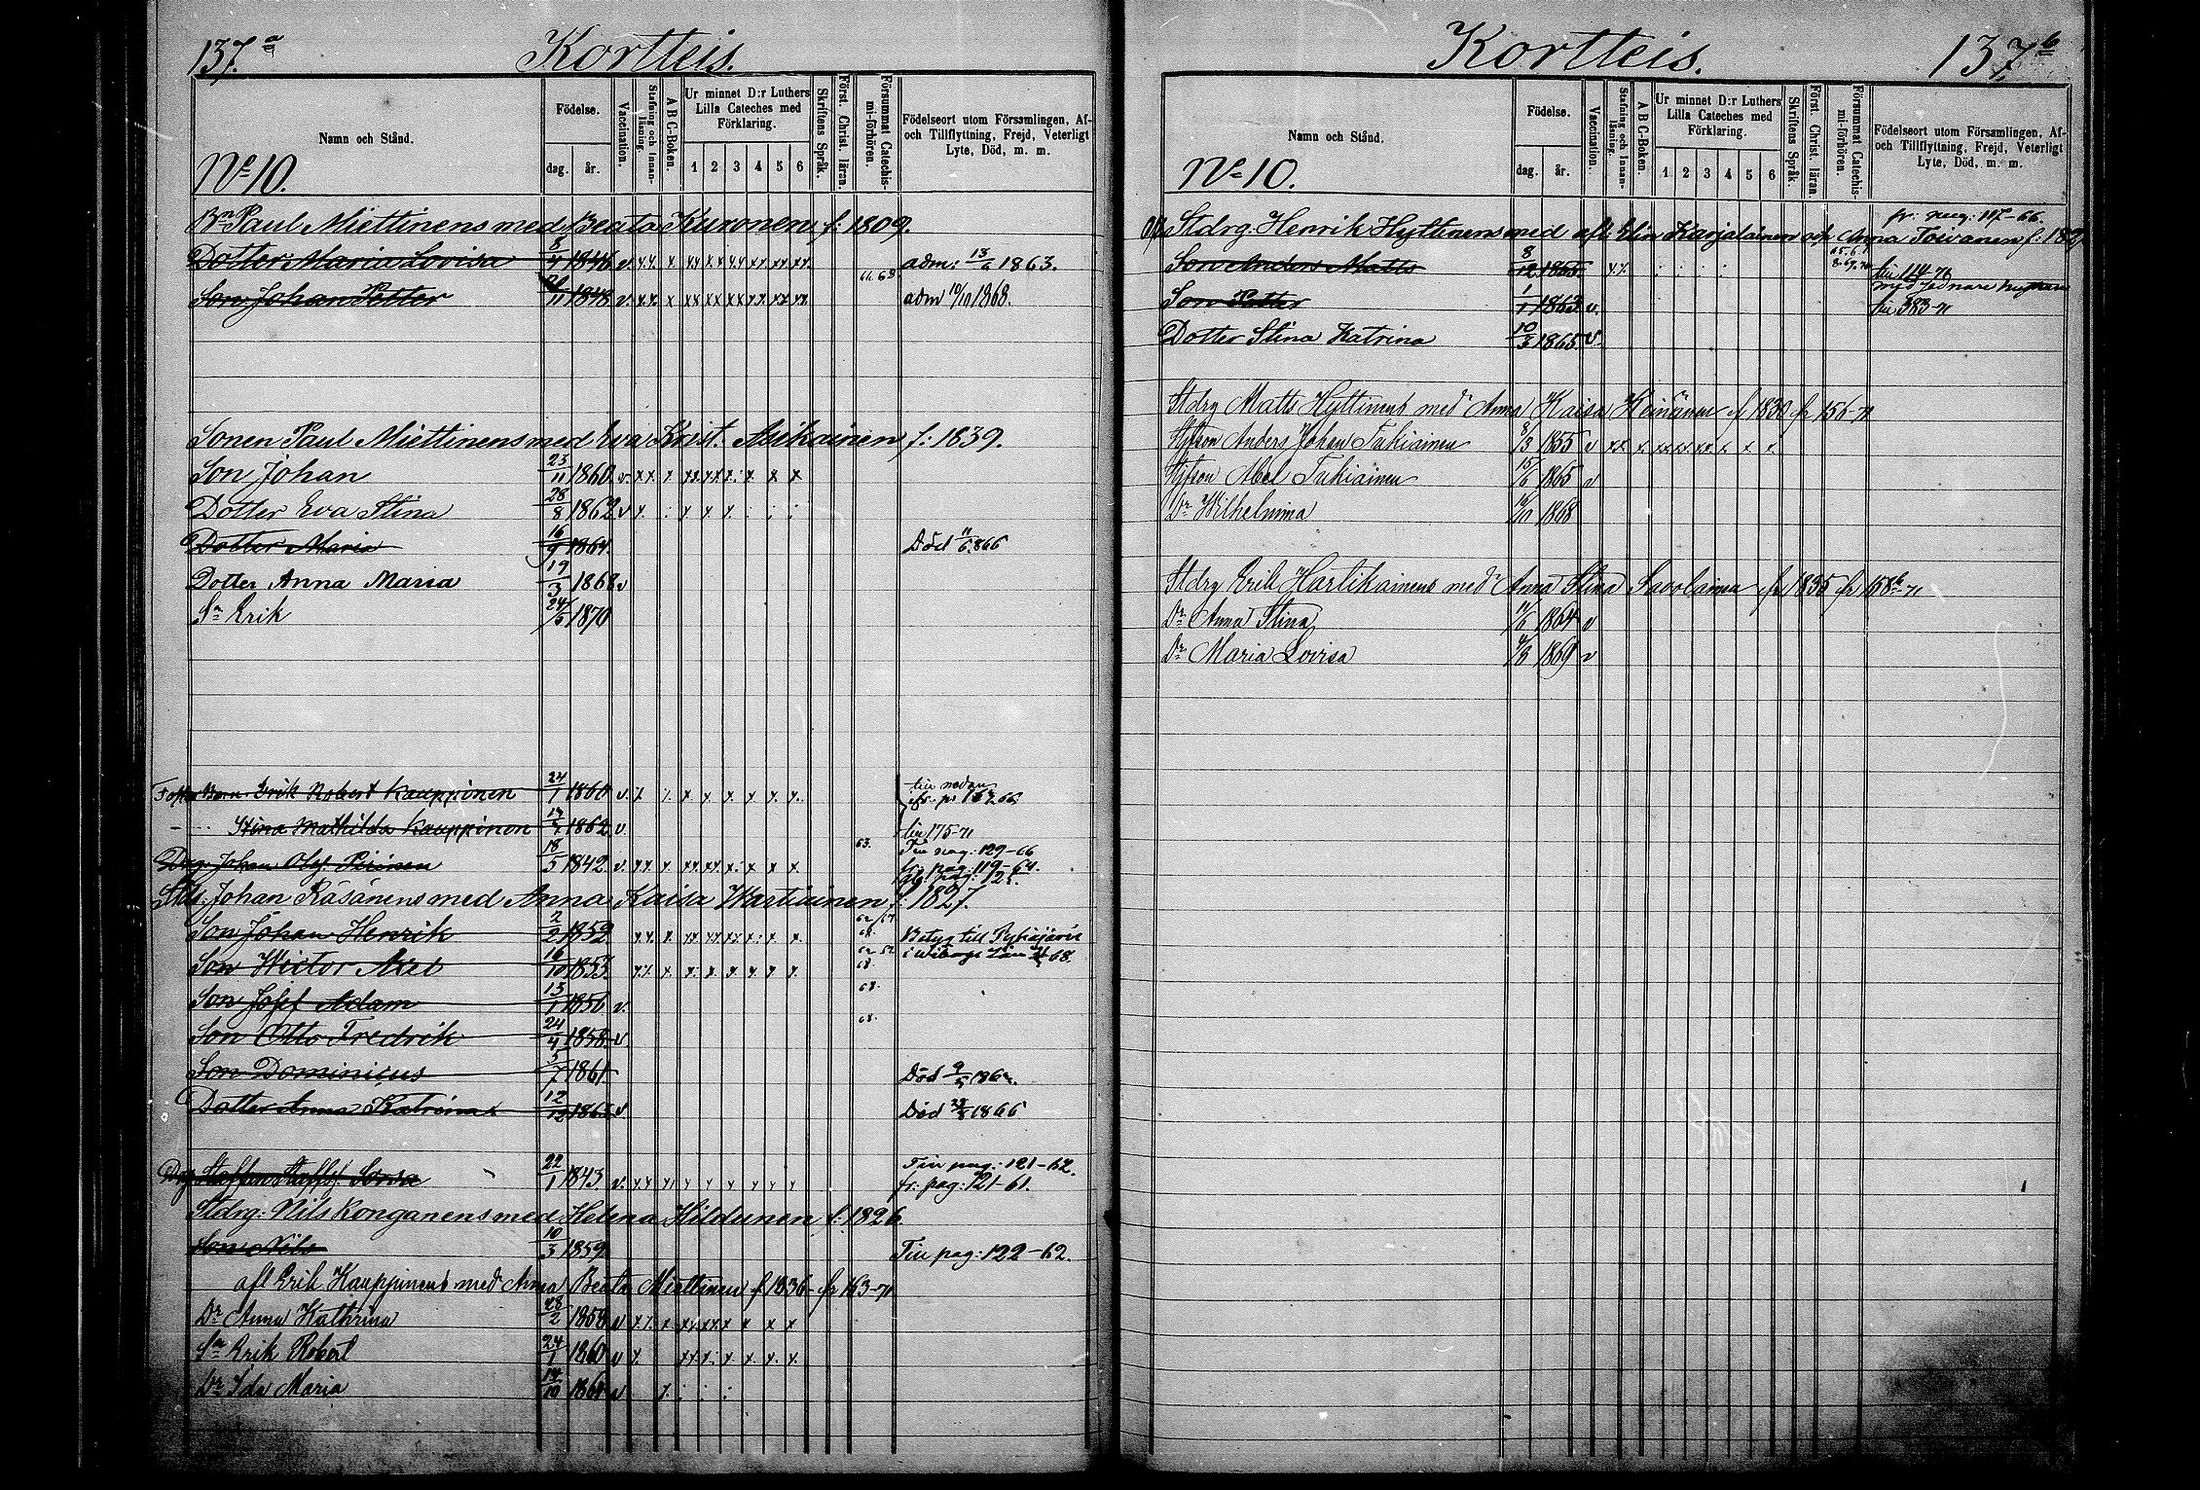 137.a Kortteis.
Namn och Stånd. Födelse. dag. år. Vaccination. Stafning och Innanläsning. A B C-Boken. Ur minnet D:r Luthers Lilla Cateches med Förklaring. 1 2 3 4 5 6 Skriftens Språk. Först. Christ. läran. Försummat Catechismi-förhören. Födelseort utom Församlingen, Af- och Tillflyttning, Frejd, Veterligt Lyte, Död, m. m.
No 10.
Bn Paul Miettinens med Beata Kuronen f: 1809.
Dotter Maria Lovisa 8/4 1846 v. adm: 13/6 1863.
Son Johan Petter 1848 v. 66. 68 adm 1868.
Sonen Paul Miettinens med Eva Krist. Asikainen f: 1839.
Son Johan 23/11 1860 v.
Dotter Eva Stina 28/8 1862 v
Dotter Maria 16/9 1864. Död 11/6 866
Dotter Anna Maria 19/3 1868 v
Sn Erik 24/5 1870
Foster Barn Erik Robert Kauppinen 24/1 1860 v. till nedan
Stina Mathilda Kauppinen 1862 v. till 175-71
Drg. Johan Olof Piirinen 18/5 1842 v. 63. Till pag: 129-66
fr: pag: 119-64.
Stdr. Johan Räsänens med Anna Kaisa Wartiainen f: 1827.
Son Johan Henrik 2/2 1852 Betyg till Pyhäjärvi
Son Wictor Axel 16/10 1853. i Wiborgs Län 68.
Son Josef Adam 13/1 1856 v. 68.
Son Otto Fredrik 24/4 1858 v. 68.
Son Dominicus 5/7 1861. Död
Dotter Anna Katrina 12/12 1863 v Död 1866
Drg Staffan Staffsf. Sorsa 22/1 1843 v. Till pag: 121-62.
fr: pag: 121-61.
Stdrg: Nils Konganens med Helena Hildunen f: 1826
Son Nils 10/3 1859 Till pag: 122-62.
afl Erik Kauppinens med Anna Beata Miettinen f 1836 fr 163-71
Dr Anna Kathrina 28/2 1858 v
Sn Erik Robert 24/1 1860 v
Dr Ida Maria 14/10 186 v
Kortteis. 137.b
Namn och Stånd. Födelse. dag. år. Vaccination. Stafning och Innanläsning. A B C-Boken. Ur minnet D:r Luthers Lilla Cateches med Förklaring. 1 2 3 4 5 6 Skriftens Språk. Först. Christ. läran. Försummat Catechismi-förhören. Födelseort utom Församlingen, Af- och Tillflyttning, Frejd, Veterligt Lyte, Död, m. m.
No 10.
fr: pag: 117-66.
Stdrg. Henrik Hyttinens med afl: Elin Karjalainen och Anna Toivanen f:
Son Anders Matts 8/12 1855 till 114-76
Son Petter 1/1 1863 v. till 383-71
Dotter Stina Katrina 10/3 1865 v.
Stdrg Matts Hyttinens med Anna Kaisa Heinänen f 1830 fr 156-71
Styfson Anders Johan Tukiainen 8/3 1855 v
Styfson Abel Tukiainen 15/6 1865 v
Dr Wilhelmina 1868
Stdrg Erik Hartikainens med Anna Stina Savolainen f 1835 fr 158b-71
Dr Anna Stina 11/6 1864 v
Dr Maria Lovisa 1869 v